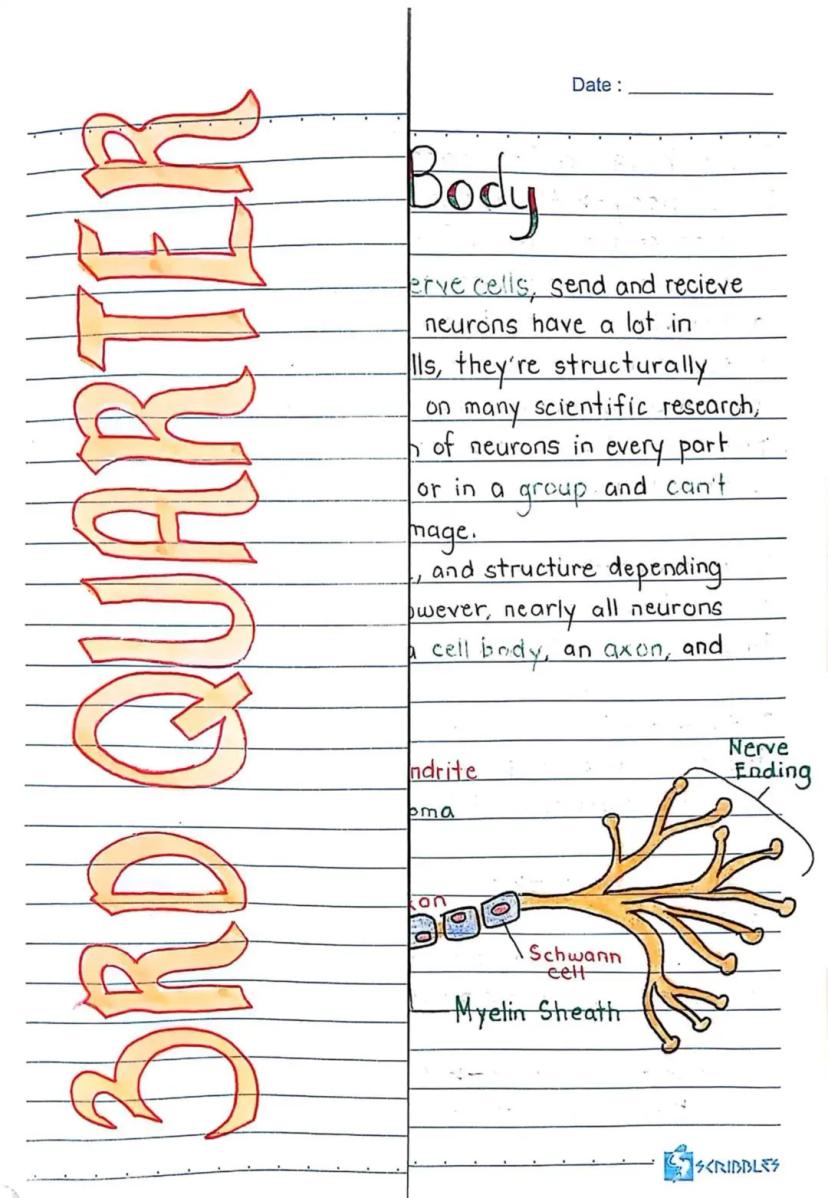 3RD QUARTER
Date :
Body
erve cells, send and recieve
neurons have a lot in
lls, they're structurally
on many scientific research,
of neurons in every part
or in a group and can't
mage.
, and structure depending
owever, nearly all neurons
a cell body, an axon, and
Nerve
Ending
ndrite
oma
on
Schwann
cell
Myelin Sheath
SCRIBBLES